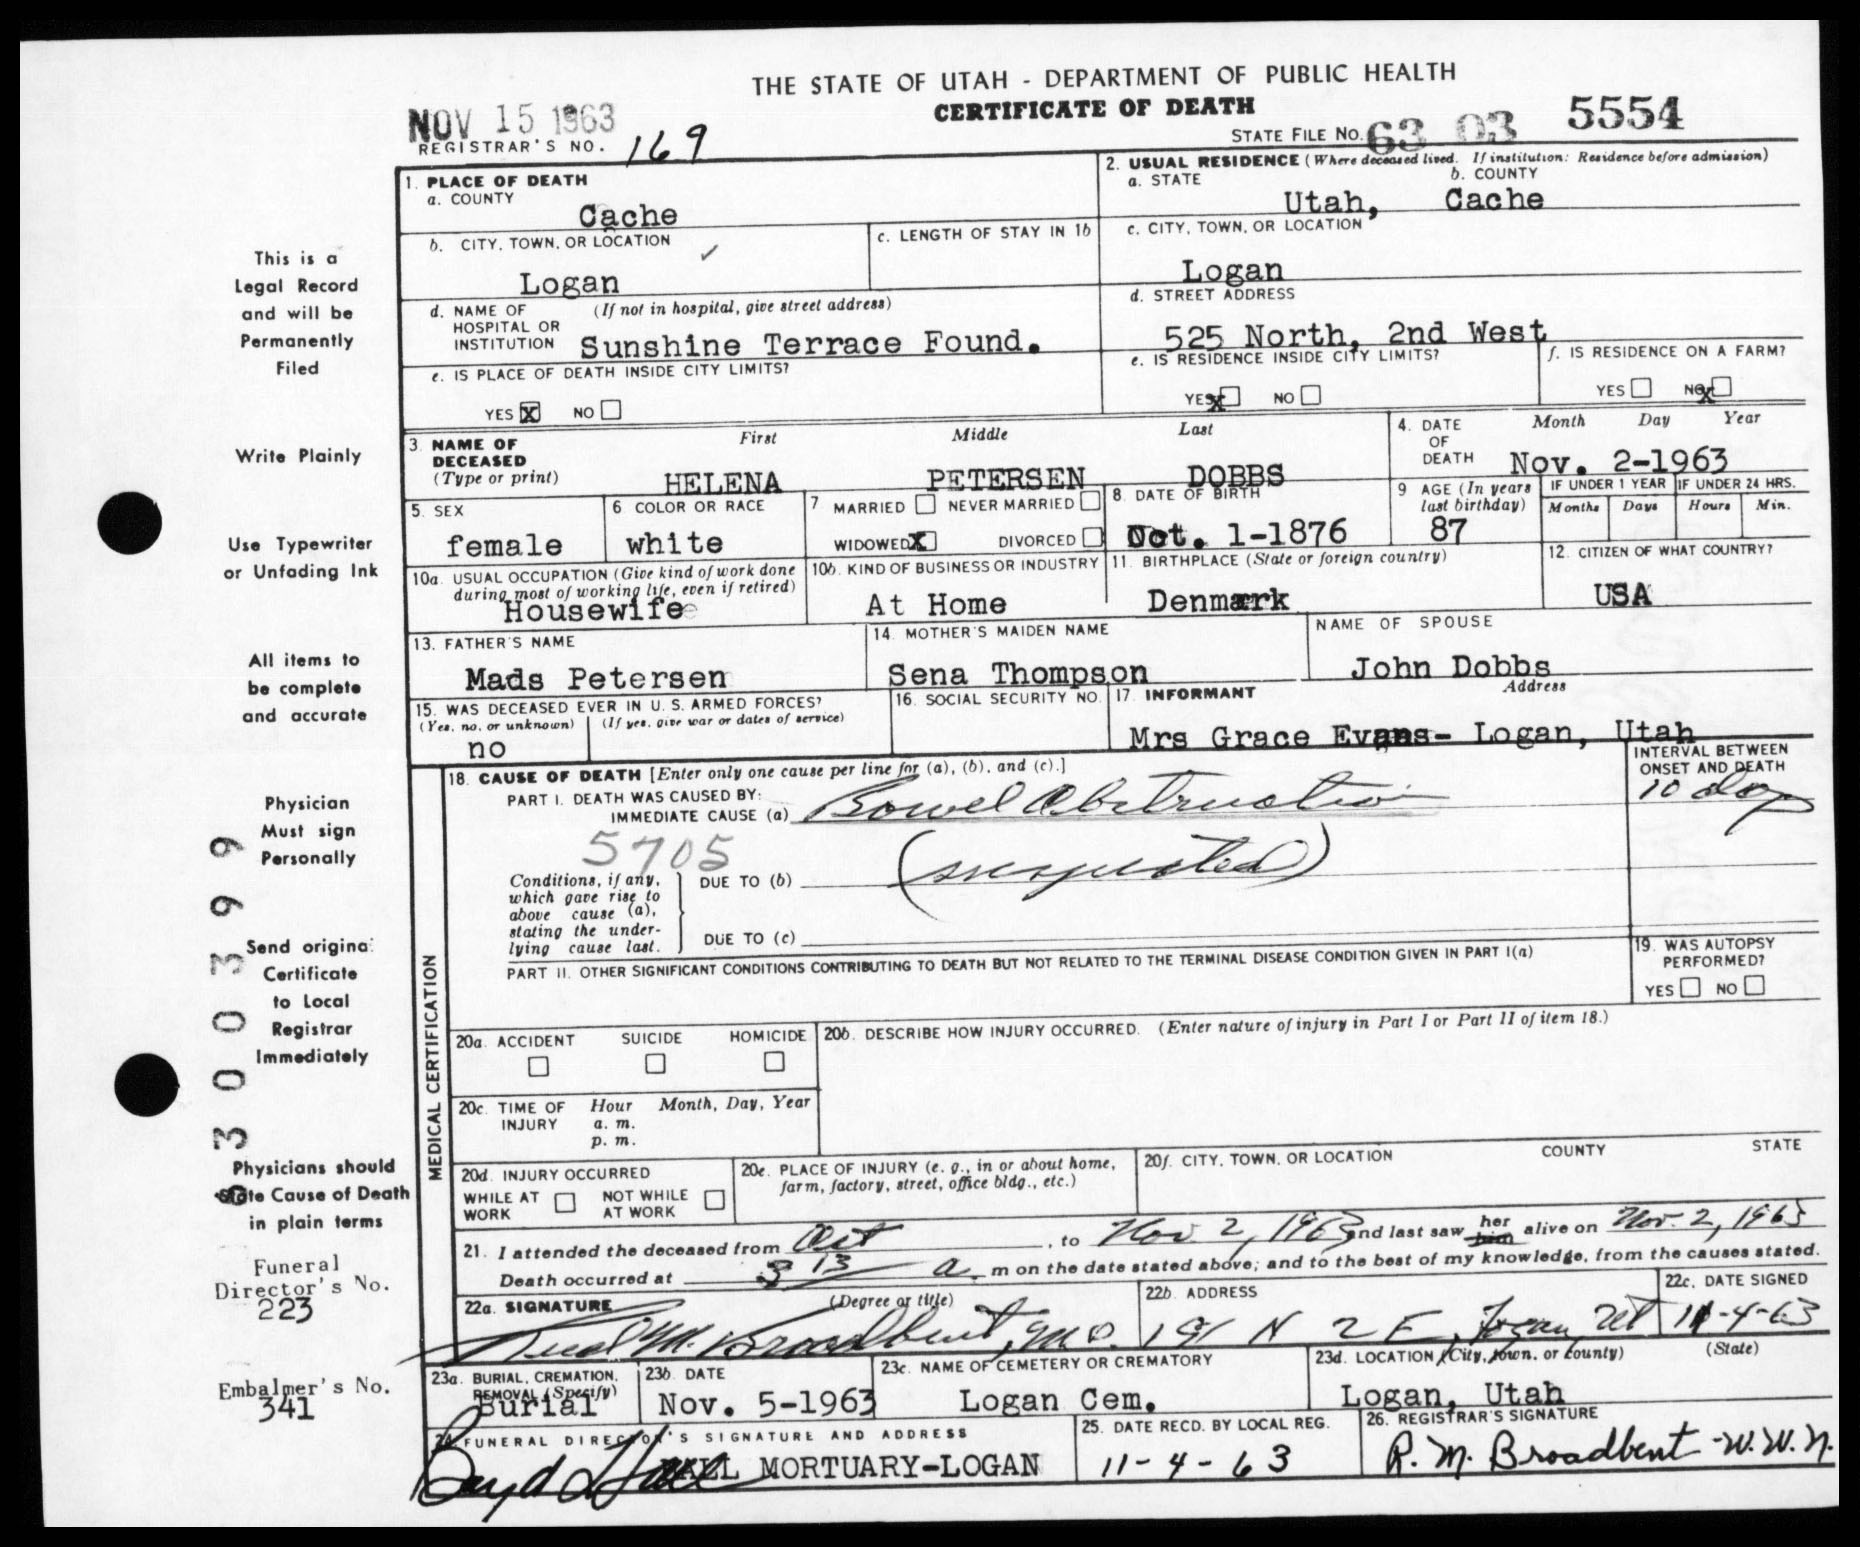 THE STATE OF UTAH - DEPARTMENT OF PUBLIC HEALTH
CERTIFICATE OF DEATH
NOV 15 1963
REGISTRAR'S NO. 169
STATE FILE NO. 63 03 5554
1. PLACE OF DEATH
a. COUNTY
Cache
2. USUAL RESIDENCE (Where deceased lived. If institution: Residence before admission)
a. STATE b. COUNTY
Utah, Cache
b. CITY, TOWN, OR LOCATION
Logan
c. LENGTH OF STAY IN 1b
c. CITY, TOWN, OR LOCATION
Logan
d. NAME OF HOSPITAL OR INSTITUTION (If not in hospital, give street address)
Sunshine Terrace Found.
d. STREET ADDRESS
525 North, 2nd West
e. IS PLACE OF DEATH INSIDE CITY LIMITS?
YES X NO
e. IS RESIDENCE INSIDE CITY LIMITS?
YES X NO
f. IS RESIDENCE ON A FARM?
YES NO X
3. NAME OF DECEASED (Type or print)
First Middle Last
HELENA PETERSEN DOBBS
4. DATE OF DEATH Month Day Year
Nov. 2-1963
5. SEX
female
6 COLOR OR RACE
white
7 MARRIED NEVER MARRIED
WIDOWED X DIVORCED
8. DATE OF BIRTH
Oct. 1-1876
9 AGE (In years last birthday)
87
IF UNDER 1 YEAR IF UNDER 24 HRS.
Months Days Hours Min.
10a. USUAL OCCUPATION (Give kind of work done during most of working life, even if retired)
Housewife
10b. KIND OF BUSINESS OR INDUSTRY
At Home
11. BIRTHPLACE (State or foreign country)
Denmark
12. CITIZEN OF WHAT COUNTRY?
USA
13. FATHER'S NAME
Mads Petersen
14. MOTHER'S MAIDEN NAME
Sena Thompson
NAME OF SPOUSE
John Dobbs
15. WAS DECEASED EVER IN U. S. ARMED FORCES?
(Yes, no, or unknown) (If yes, give war or dates of service)
no
16. SOCIAL SECURITY NO.
17. INFORMANT Address
Mrs Grace Evans- Logan, Utah
MEDICAL CERTIFICATION
18. CAUSE OF DEATH [Enter only one cause per line for (a), (b), and (c).]
INTERVAL BETWEEN ONSET AND DEATH
PART I. DEATH WAS CAUSED BY:
IMMEDIATE CAUSE (a) Bowel Obstruction
10 days
5705
(suspected)
Conditions, if any, which gave rise to above cause (a), stating the underlying cause last.
DUE TO (b)
DUE TO (c)
PART II. OTHER SIGNIFICANT CONDITIONS CONTRIBUTING TO DEATH BUT NOT RELATED TO THE TERMINAL DISEASE CONDITION GIVEN IN PART I(a)
19. WAS AUTOPSY PERFORMED?
YES NO
20a. ACCIDENT SUICIDE HOMICIDE
20b. DESCRIBE HOW INJURY OCCURRED. (Enter nature of injury in Part I or Part II of item 18.)
20c. TIME OF INJURY Hour Month, Day, Year
a. m.
p. m.
20d. INJURY OCCURRED
WHILE AT WORK NOT WHILE AT WORK
20e. PLACE OF INJURY (e. g., in or about home, farm, factory, street, office bldg., etc.)
20f. CITY, TOWN, OR LOCATION COUNTY STATE
21. I attended the deceased from Oct, to Nov 2, 1963 and last saw her him alive on Nov. 2, 1963
Death occurred at 3 13 a. m on the date stated above; and to the best of my knowledge, from the causes stated.
22a. SIGNATURE (Degree or title)
M. Broadbent, M.D.
22b. ADDRESS
191 N 2 E, Logan, Ut
22c. DATE SIGNED
11-4-63
23a. BURIAL, CREMATION, REMOVAL (Specify)
Burial
23b. DATE
Nov. 5-1963
23c. NAME OF CEMETERY OR CREMATORY
Logan Cem.
23d. LOCATION (City, town, or county) (State)
Logan, Utah
24. FUNERAL DIRECTOR'S SIGNATURE AND ADDRESS
Boyd Hall HALL MORTUARY-LOGAN
25. DATE RECD. BY LOCAL REG.
11-4-63
26. REGISTRAR'S SIGNATURE
R. M. Broadbent - W. W. N.
This is a
Legal Record
and will be
Permanently
Filed
Write Plainly
Use Typewriter
or Unfading Ink
All items to
be complete
and accurate
Physician
Must sign
Personally
Send original
Certificate
to Local
Registrar
Immediately
Physicians should
State Cause of Death
in plain terms
Funeral
Director's No.
223
Embalmer's No.
341